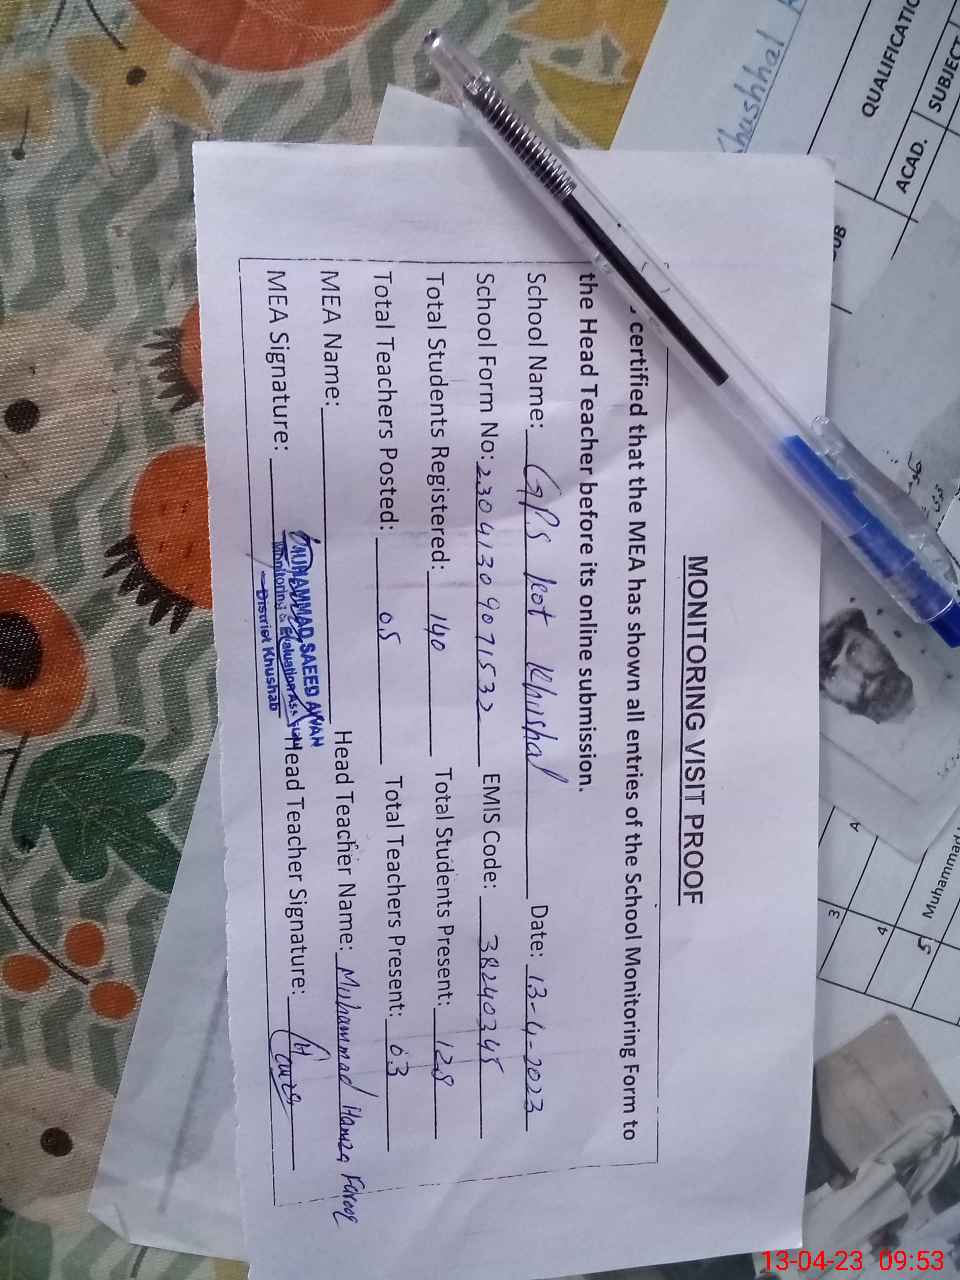 MONITORING VISIT PROOF
certified that the MEA has shown all entries of the School Monitoring Form to
the Head Teacher before its online submission.
School Name: GPS kot Khushal Date: 13-4-2023
School Form No: 23041309071532 EMIS Code: 38240345
Total Students Registered: 140 Total Students Present: 128
Total Teachers Posted: 05 Total Teachers Present: 03
MEA Name: Head Teacher Name: Muhammad Hamza Farooq
MUHAMMAD SAEED AWAN
Monitoring & Evaluation
District Khushab
MEA Signature: Head Teacher Signature: Hamza
Khushhal
QUALIFICATIO
ACAD. SUBJECT
3
4
4
5 Muhammad
13-04-23 09:53